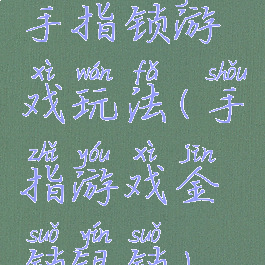 手指锁游
xì wán fǎ shǒu
戏玩法(手
zhǐ yóu xì jīn
指游戏金
suǒ yín suǒ
锁银锁)